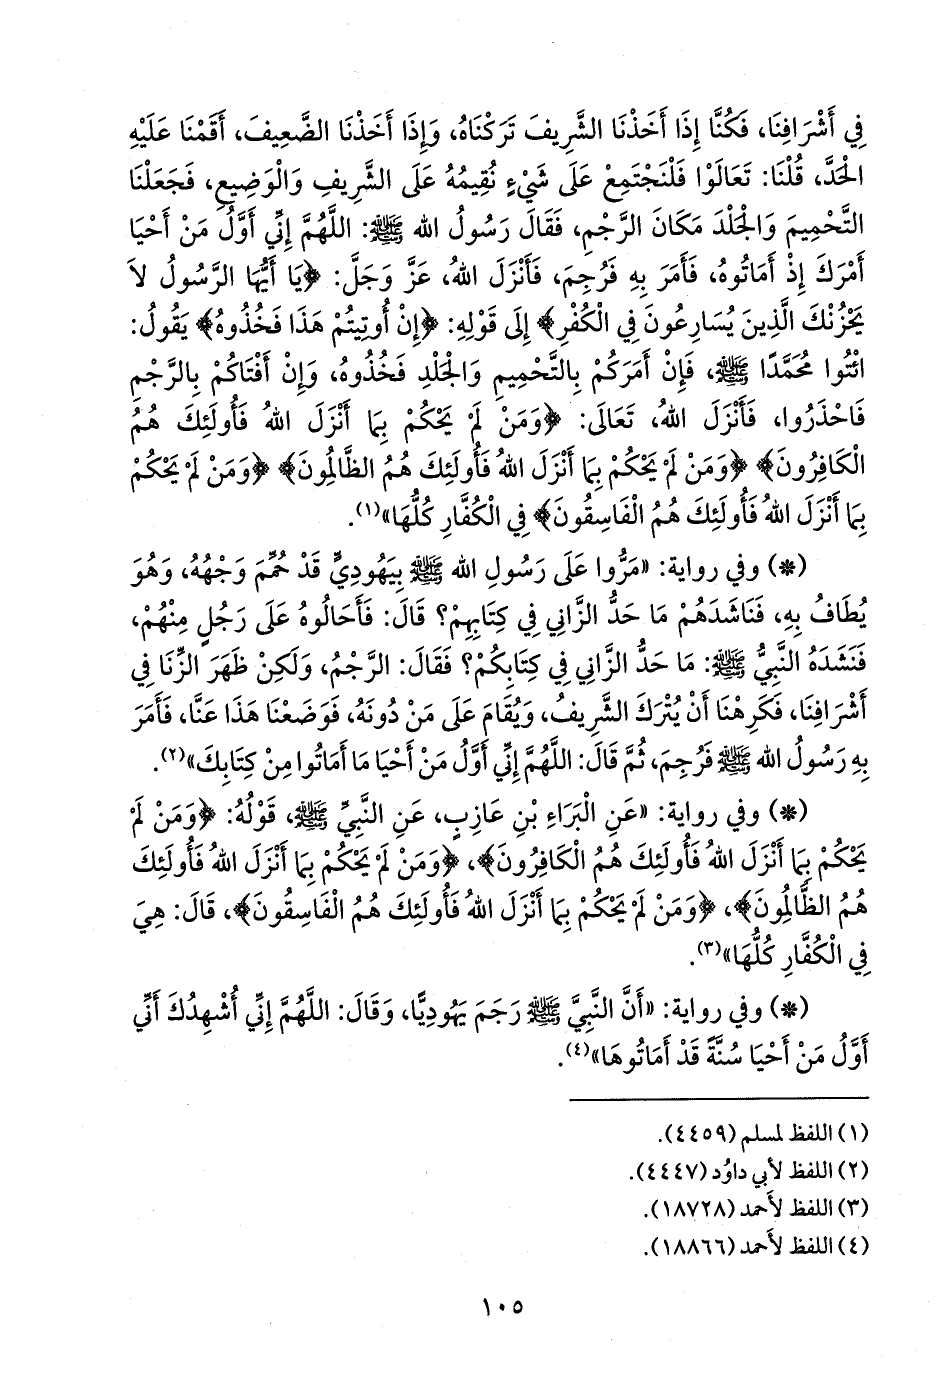 فِي أَشْرَافِنَا، فَكُنَّا إِذَا أَخَذْنَا الشَّرِيفَ تَرَكْنَاهُ، وَإِذَا أَخَذْنَا الضَّعِيفَ، أَقَمْنَا عَلَيْهِ
الْحَدَّ، قُلْنَا: تَعَالَوْا فَلْنَجْتَمِعْ عَلَى شَيْءٍ نُقِيمُهُ عَلَى الشَّرِيفِ وَالْوَضِيعِ، فَجَعَلْنَا
التَّحْمِيمَ وَالْجَلْدَ مَكَانَ الرَّجْمِ، فَقَالَ رَسُولُ الله ﷺ: اللَّهُمَّ إِنِّي أَوَّلُ مَنْ أَحْيَا
أَمْرَكَ إِذْ أَمَاتُوهُ، فَأَمَرَ بِهِ فَرُجِمَ، فَأَنْزَلَ اللهُ، عَزَّ وَجَلَّ: ﴿يَا أَيُّهَا الرَّسُولُ لاَ
يَحْزُنْكَ الَّذِينَ يُسَارِعُونَ فِي الْكُفْرِ﴾ إِلَى قَوْلِهِ: ﴿إِنْ أُوتِيتُمْ هَذَا فَخُذُوهُ﴾ يَقُولُ:
ائْتُوا مُحَمَّدًا ﷺ، فَإِنْ أَمَرَكُمْ بِالتَّحْمِيمِ وَالْجَلْدِ فَخُذُوهُ، وَإِنْ أَفْتَاكُمْ بِالرَّجْمِ
فَاحْذَرُوا، فَأَنْزَلَ اللهُ، تَعَالَى: ﴿وَمَنْ لَمْ يَحْكُمْ بِمَا أَنْزَلَ اللهُ فَأُولَئِكَ هُمُ
الْكَافِرُونَ﴾ ﴿وَمَنْ لَمْ يَحْكُمْ بِمَا أَنْزَلَ اللهُ فَأُولَئِكَ هُمُ الظَّالِمُونَ﴾ ﴿وَمَنْ لَمْ يَحْكُمْ
بِمَا أَنْزَلَ اللهُ فَأُولَئِكَ هُمُ الْفَاسِقُونَ﴾ فِي الْكُفَّارِ كُلُّهَا»(١).
(*) وفي رواية: «مَرُّوا عَلَى رَسُولِ الله ﷺ بِيَهُودِيٍّ قَدْ حُمِّمَ وَجْهُهُ، وَهُوَ
يُطَافُ بِهِ، فَنَاشَدَهُمْ مَا حَدُّ الزَّانِي فِي كِتَابِهِمْ؟ قَالَ: فَأَحَالُوهُ عَلَى رَجُلٍ مِنْهُمْ،
فَنَشَدَهُ النَّبِيُّ ﷺ: مَا حَدُّ الزَّانِي فِي كِتَابِكُمْ؟ فَقَالَ: الرَّجْمُ، وَلَكِنْ ظَهَرَ الزِّنَا فِي
أَشْرَافِنَا، فَكَرِهْنَا أَنْ يُتْرَكَ الشَّرِيفُ، وَيُقَامَ عَلَى مَنْ دُونَهُ، فَوَضَعْنَا هَذَا عَنَّا، فَأَمَرَ
بِهِ رَسُولُ الله ﷺ فَرُجِمَ، ثُمَّ قَالَ: اللَّهُمَّ إِنِّي أَوَّلُ مَنْ أَحْيَا مَا أَمَاتُوا مِنْ كِتَابِكَ»(٢).
(*) وفي رواية: «عَنِ الْبَرَاءِ بْنِ عَازِبٍ، عَنِ النَّبِيِّ ﷺ، قَوْلُهُ: ﴿وَمَنْ لَمْ
يَحْكُمْ بِمَا أَنْزَلَ اللهُ فَأُولَئِكَ هُمُ الْكَافِرُونَ﴾، ﴿وَمَنْ لَمْ يَحْكُمْ بِمَا أَنْزَلَ اللهُ فَأُولَئِكَ
هُمُ الظَّالِمُونَ﴾، ﴿وَمَنْ لَمْ يَحْكُمْ بِمَا أَنْزَلَ اللهُ فَأُولَئِكَ هُمُ الْفَاسِقُونَ﴾، قَالَ: هِيَ
فِي الْكُفَّارِ كُلُّهَا»(٣).
(*) وفي رواية: «أَنَّ النَّبِيَّ ﷺ رَجَمَ يَهُودِيًّا، وَقَالَ: اللَّهُمَّ إِنِّي أُشْهِدُكَ أَنِّي
أَوَّلُ مَنْ أَحْيَا سُنَّةً قَدْ أَمَاتُوهَا»(٤).
(١) اللفظ لمسلم (٤٤٥٩).
(٢) اللفظ لأبي داوُد (٤٤٤٧).
(٣) اللفظ لأَحمد (١٨٧٢٨).
(٤) اللفظ لأَحمد (١٨٨٦٦).
١٠٥